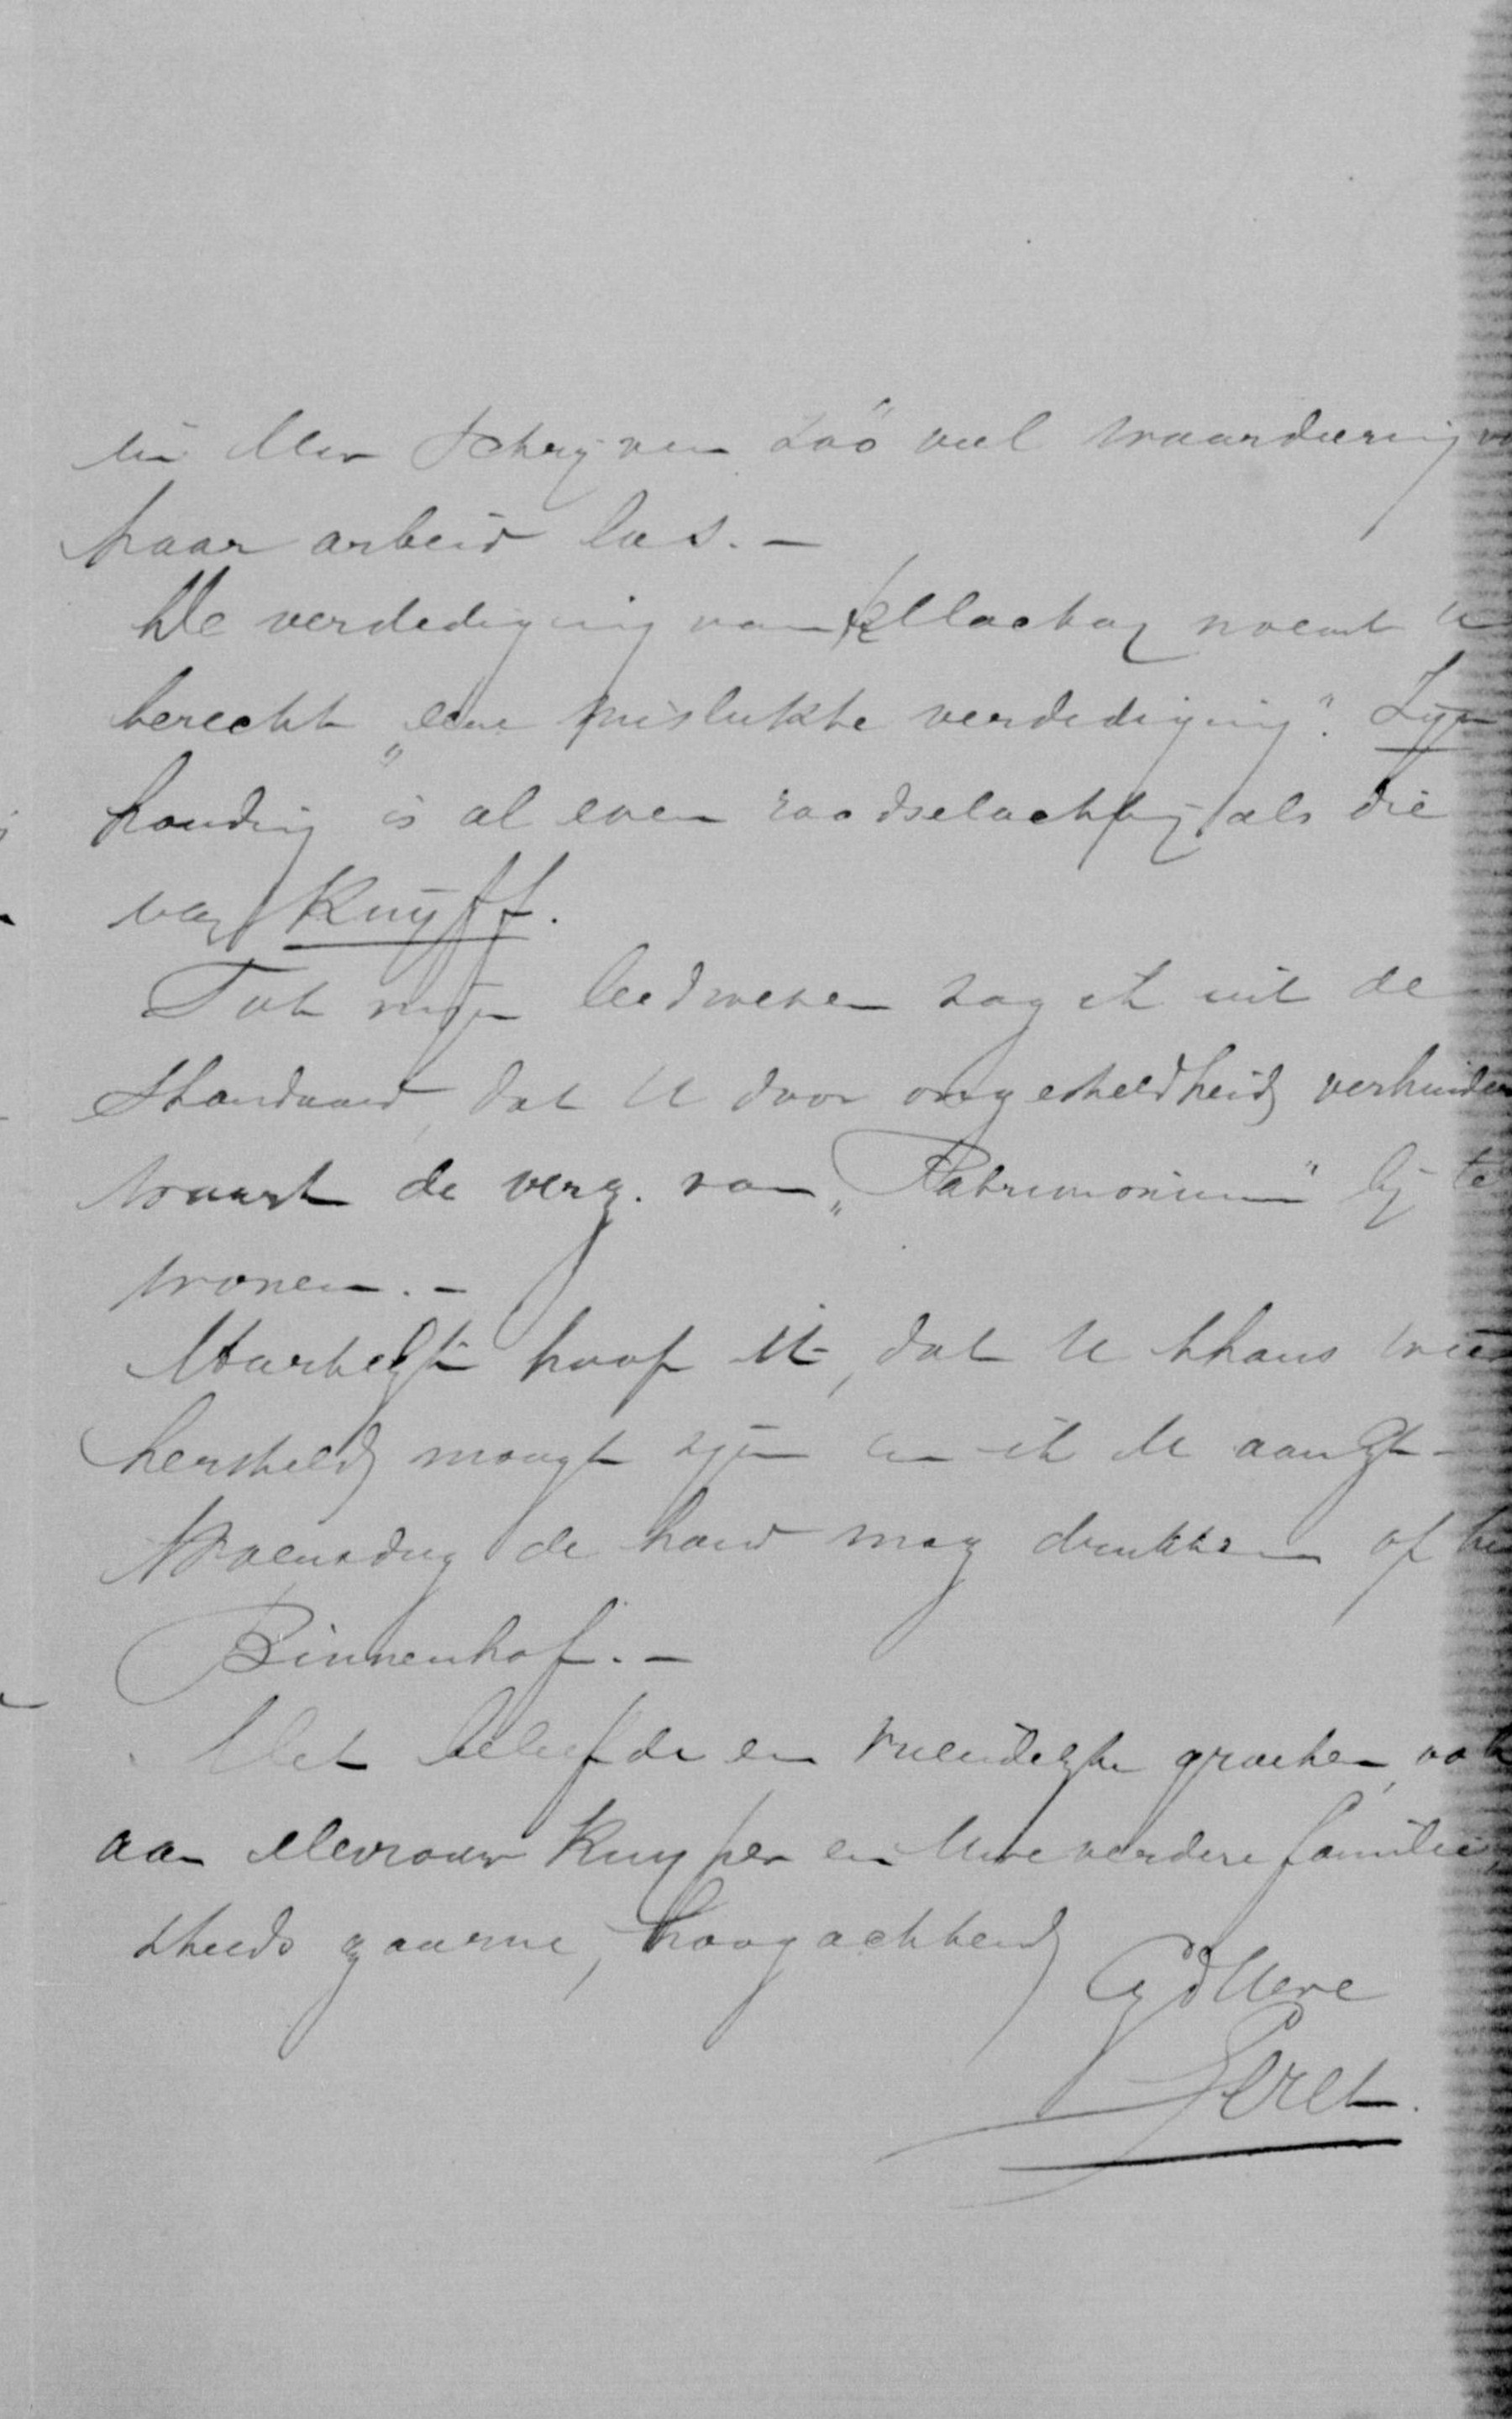 in Uw schrijven zoó veel waardeering
haar arbeid las. -
De verdediging van Mackay noemt U
terecht „eene mislukte verdediging". Zijn
houding is al even raadselachtig als die
van Kuyff.
Tot mijn leedwezen zag ik uit de
Standaard, dat U door ongesteldheid verhinder
waart de verg. van „Patrimonium" bij te
wonen. -
Hartelijk hoop ik, dat U thans
hersteld moogt zijn en ik U aanst.
Woensdag de hand mag drukken of het
Binnenhof. -
Met beleefde en vriendelijke groeten, ook
aan Mevrouw Kuyper en Uwe verdere familie,
steeds gaarne, hoogachtend
Uwe